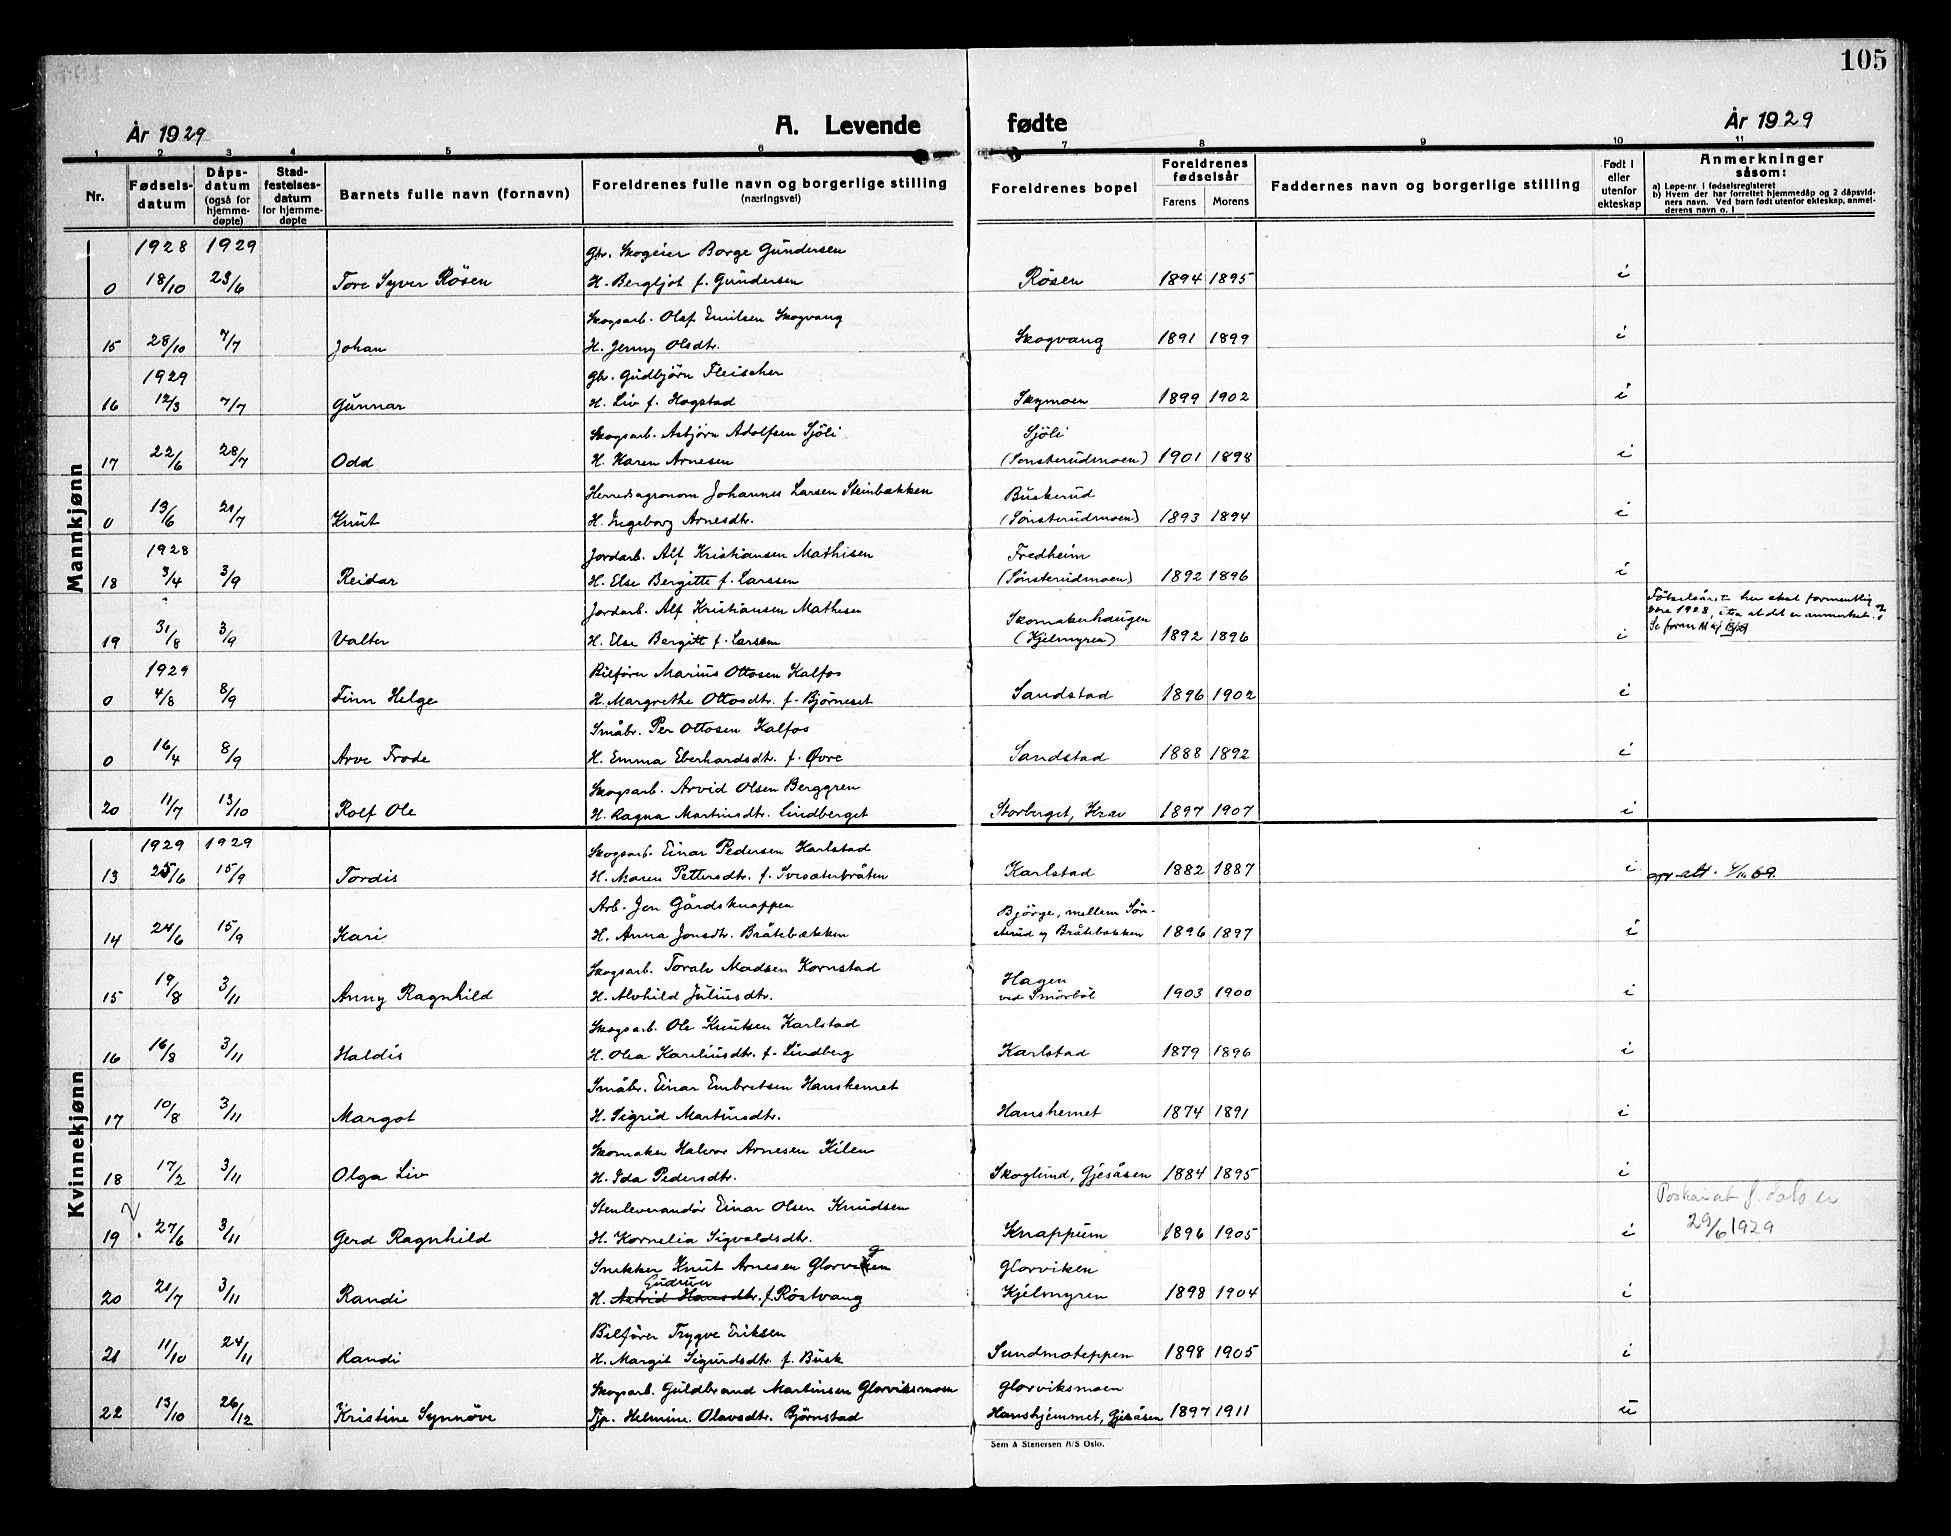 105
År 1929 A. Levende fødte År 1929
1 2 3 4 5 6 7 8 9 10 11
Nr. Fødselsdatum Dåpsdatum (også for hjemmedøpte) Stadfestelsesdatum for hjemmedøpte Barnets fulle navn (fornavn) Foreldrenes fulle navn og borgerlige stilling (næringsvei) Foreldrenes bopel Foreldrenes fødselsår Farens Morens Faddernes navn og borgerlige stilling Født i eller utenfor ekteskap Anmerkninger såsom:
a) Løpe-nr. i fødselsregisteret
b) Hvem der har forrettet hjemmedåp og 2 dåpsvidners navn. Ved barn født utenfor ekteskap, anmelderens navn o. l
Mannkjønn
1928 1929 Gbr. Skogeier Borge Gundersen
0 18/10 23/6 Tore Syver Røsen H. Bergljot f. Gundersen Røsen 1894 1895 i
Skogsarb. Olaf Emilsen Skogvang
15 28/10 7/7 Johan H. Jenny Olsdtr. Skogvang 1891 1899 i
1929 Gbr. Gudbjørn Fleischer
16 12/3 7/7 Gunnar H. Liv f. Hogstad Skymoen 1899 1902 i
Skogsarb. Asbjørn Adolfsen Sjöli Sjöli
17 22/6 28/7 Odd H. Karen Arnesen (Sønsterudmoen) 1901 1898 i
Herredsagronom Johannes Larsen Steinbækken Buskerud
0 13/6 21/7 Knut H. Ingeborg Arnesdtr. (Sønsterudmoen) 1893 1894 i
1928 Jordarb. Alf Kristiansen Mathisen Fredheim
18 3/4 3/9 Reidar H. Else Bergitte f. Larssen (Sønsterudmoen) 1892 1896 i
Jordarb. Alf Kristiansen Mathisen Skomakerhaugen Fødselsåret her skal formentlig være 1928, uten at det er anmerket.
19 31/8 3/9 Valter H. Else Bergitt f. Larsen (Kjelmyren) 1892 1896 i
1929 Bilfører Marius Ottosen Kalfos
0 4/8 8/9 Finn Helge H. Margrethe Ottosdtr. f. Bjørneset Sandstad 1896 1902 i
Småbr. Per Ottosen Kalfos
0 16/4 8/9 Arve Frode H. Emma Eberhardsdtr. f. Øvre Sandstad 1888 1892 i
Skogsarb. Arvid Olsen Berggren
20 11/7 13/10 Rolf Ole H. Ragna Martinsdtr. Lindberget Storberget, Krav 1897 1907 i
Kvinnekjønn
1929 1929 Skogsarb. Einar Pedersen Karlstad
13 25/6 15/9 Tordis H. Maren Pettersdtr. f. Svesæterbråten Karlstad 1882 1887 i att. 69.
Arb. Jon Gårdsknappen Bjørge, mellem Søn-
14 24/6 15/9 Kari H. Anna Jonsdtr. Bråtebækken sterud og Bråtebækken 1896 1897 i
Skogsarb. Torals Madsen Kornstad Hagen
15 19/8 3/11 Anny Ragnhild H. Alvhild Juliusdtr. ved Smörböl 1903 1900 i
Skogsarb. Ole Knutsen Karlstad
16 16/8 3/11 Haldis H. Olea Kareliusdtr. f. Lindberg Karlstad 1879 1896 i
Småbr. Einar Embretsen Hanshemet
17 10/8 3/11 Margot H. Sigrid Martinsdtr. Hanshemet 1874 1891 i
Skomaker Halvor Arnesen Kilen
18 17/2 3/11 Olga Liv H. Ida Pedersdtr. Skoglund, Gjesåsen 1884 1895 i
Stenleverandør Einar Olsen Knudsen
19 27/6 3/11 Gerd Ragnhild H. Kornelia Sigvaldsdtr. Knappum 1896 1905 i 29/6 1929
Snekker Knut Arnesen Glorvigen Glorviken
20 21/7 3/11 Randi H. Astrid Hansdtr. Gudrun f. Röstvang Kjelmyren 1898 1904 i
Bilfører Trygve Eriksen
21 11/10 24/11 Randi H. Margit Sigurdsdtr. f. Busk Sundmoteppen 1898 1905 i
Skogsarb. Guldbrand Martinsen Glorviksmoen Glorviksmoen
22 13/10 26/12 Kristine Synnöve Tjp. Helmine Olavsdtr. Bjørnstad Hanshjemmet, Gjesåsen 1897 1911 u
Sem & Stenersen A/S Oslo.